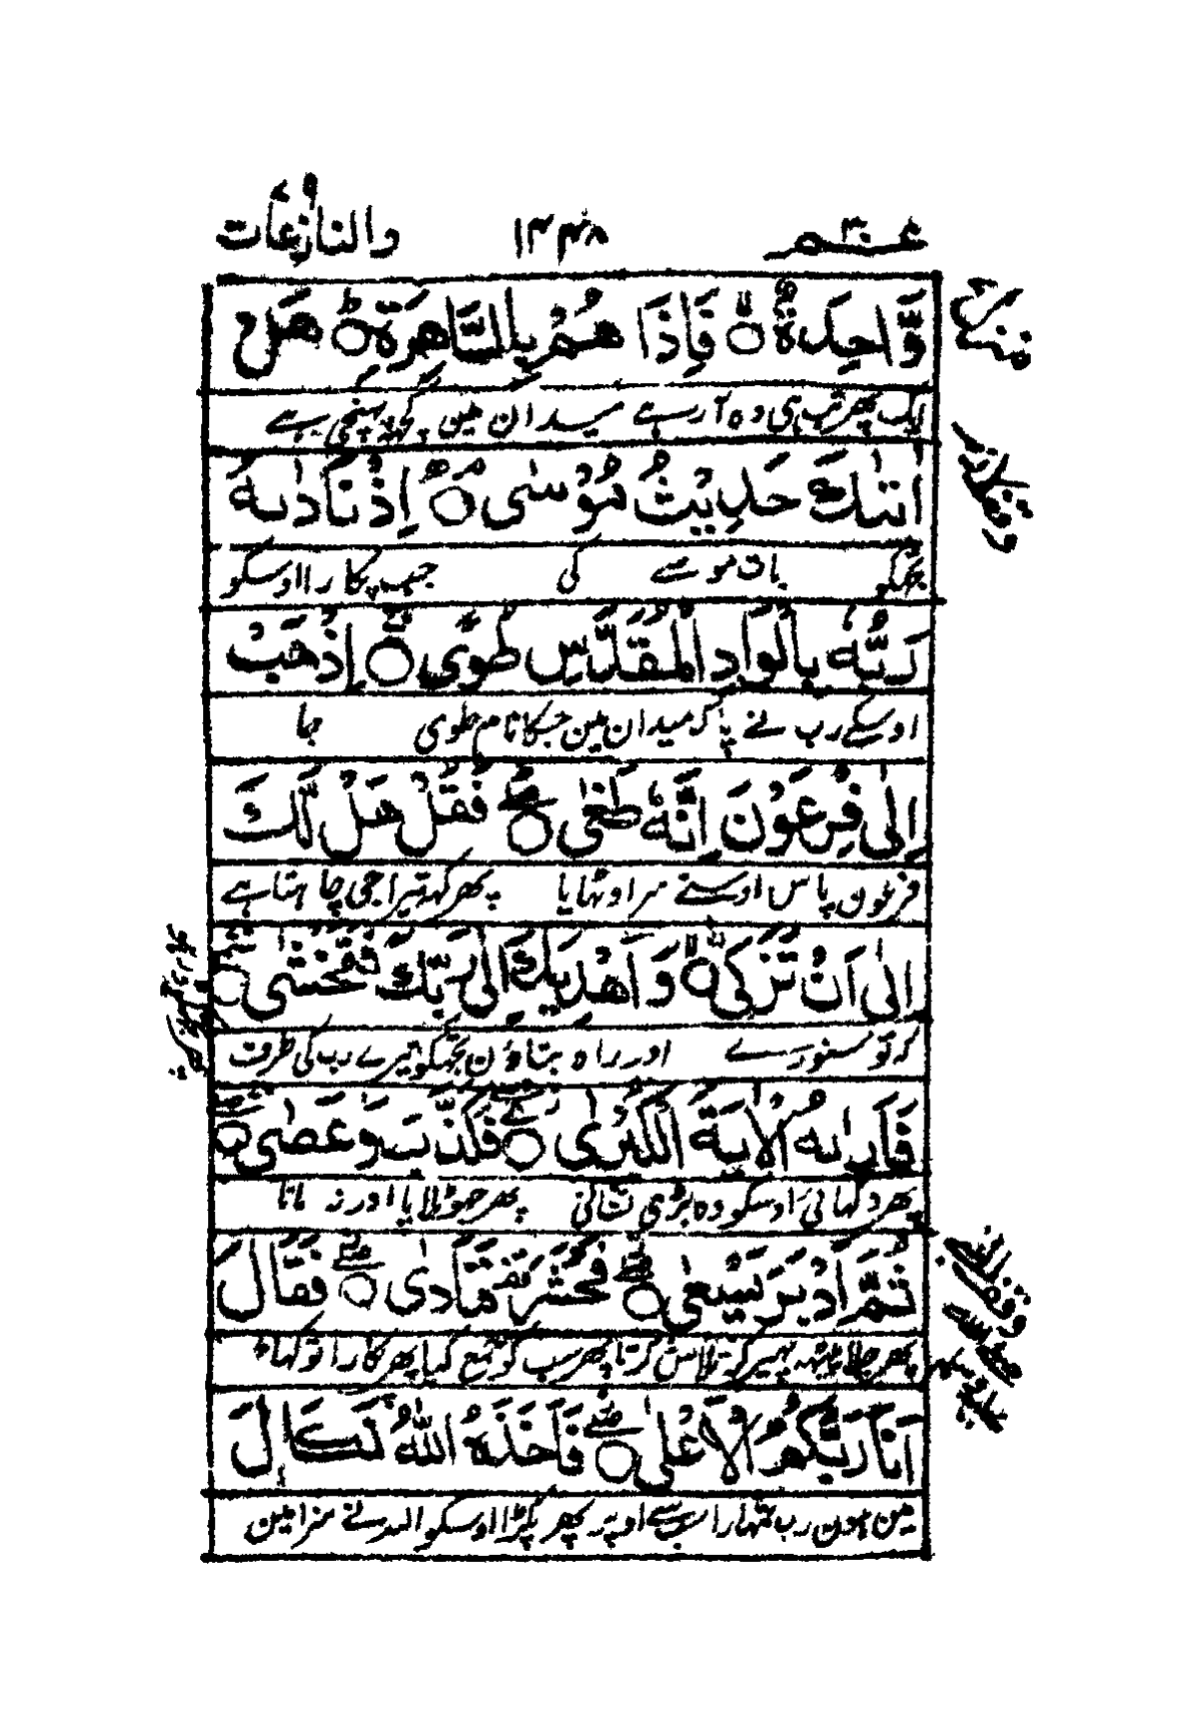 عـــم ٣٠ ١٤٣٨ والنازعات ٧٩
وَّاحِدَةٌ ۝ فَإِذَا هُمْ بِالسَّاهِرَةِ ۝ هَلْ
ایک پھر تب ہی وہ آ رہے میدان مین کچھ پہنچی ہے
أَتٰىكَ حَدِيْثُ مُوْسٰى ۝ إِذْ نَادٰىهُ
تجھکو بات موسے کی جب پکارا اوسکو
رَبُّهٗ بِالْوَادِ الْمُقَدَّسِ طُوًى ۝ اِذْهَبْ
اوسکے رب نے پاک میدان مین جسکا نام طوی جا
اِلٰى فِرْعَوْنَ اِنَّهٗ طَغٰى ۝ فَقُلْ هَلْ لَّكَ
فرعون پاس اوسنے سر اوٹھایا پھر کہہ تیرا جی چاہتا ہے
اِلٰى اَنْ تَزَكّٰى ۝ وَاَهْدِيَكَ اِلٰى رَبِّكَ فَتَخْشٰى ۝
کہ تو سنورے اور راہ بتاؤن تجھکو تیرے رب کی طرف
فَاَرٰىهُ الْاٰيَةَ الْكُبْرٰى ۝ فَكَذَّبَ وَعَصٰى ۝
پھر دکھائی اوسکو وہ بڑی نشانی پھر جھوٹلایا اور نہ مانا
ثُمَّ اَدْبَرَ يَسْعٰى ۝ فَحَشَرَ فَنَادٰى ۝ فَقَالَ
پھر چلا پیٹھ پھیر کر تلاش کرتا پھر سب کو جمع کیا پھر پکارا تو کہا
اَنَا رَبُّكُمُ الْاَعْلٰى ۝ فَاَخَذَهُ اللّٰهُ نَكَالَ
مین ہون رب تمہارا سب سے اوپر پھر پکڑا اوسکو اللہ نے سزا مین